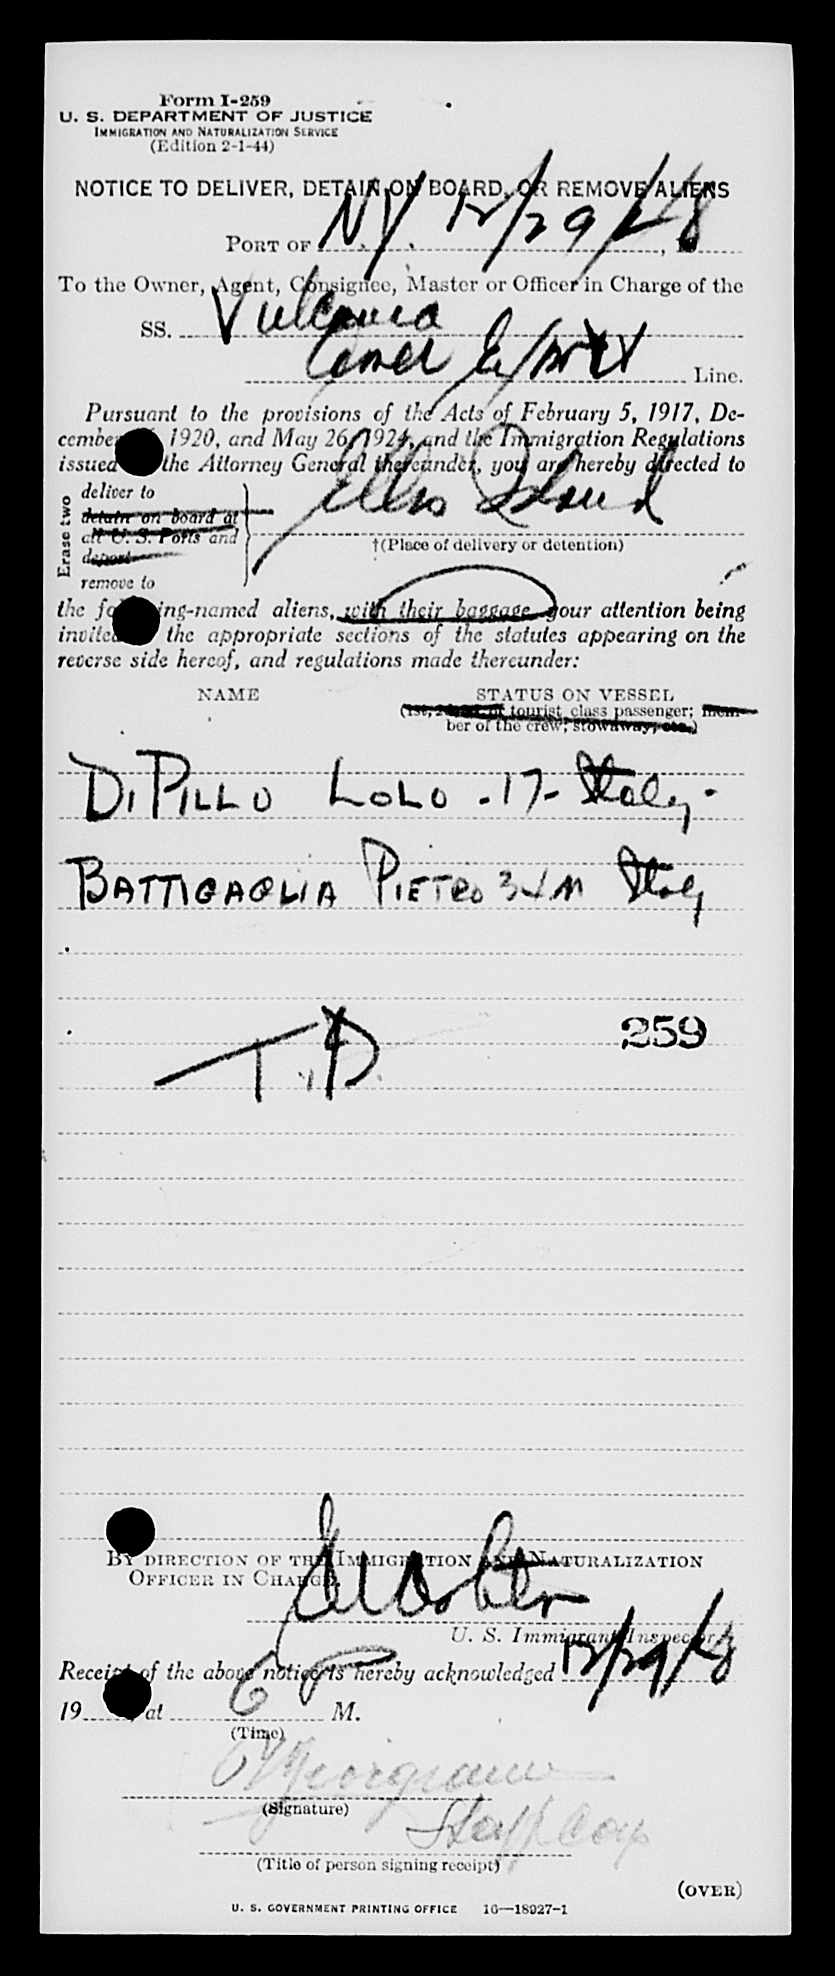 Form I-259
U. S. DEPARTMENT OF JUSTICE
IMMIGRATION AND NATURALIZATION SERVICE
(Edition 2-1-44)
NOTICE TO DELIVER, DETAIN ON BOARD, OR REMOVE ALIENS
PORT OF N.Y. 12/29/48
To the Owner, Agent, Consignee, Master or Officer in Charge of the
SS. Vulcania
Amer Export Line.
Pursuant to the provisions of the Acts of February 5, 1917, De-
cember 1920, and May 26, 1924, and the Immigration Regulations
issued the Attorney General thereunder, you are hereby directed to
Erase two
deliver to
detain on board at
all U. S. Ports and
deport
remove to
Ellis Island
†(Place of delivery or detention)
the following-named aliens, with their baggage, your attention being
invited the appropriate sections of the statutes appearing on the
reverse side hereof, and regulations made thereunder:
NAME STATUS ON VESSEL
(1st, 2d, 3d, or tourist class passenger; mem-
ber of the crew; stowaway; etc.)
DI PILLO LOLO - 17 - Italy.
BATTIGAGLIA PIETRO 34 M Italy
259
T.D.
BY DIRECTION OF THE IMMIGRATION AND NATURALIZATION
OFFICER IN CHARGE
U. S. Immigrant Inspector.
Receipt of the above notice is hereby acknowledged 12/29/48
19 , at 6 P M.
(Time)
(Signature)
Staff Cap
(Title of person signing receipt)
(OVER)
U. S. GOVERNMENT PRINTING OFFICE 16—18027-1